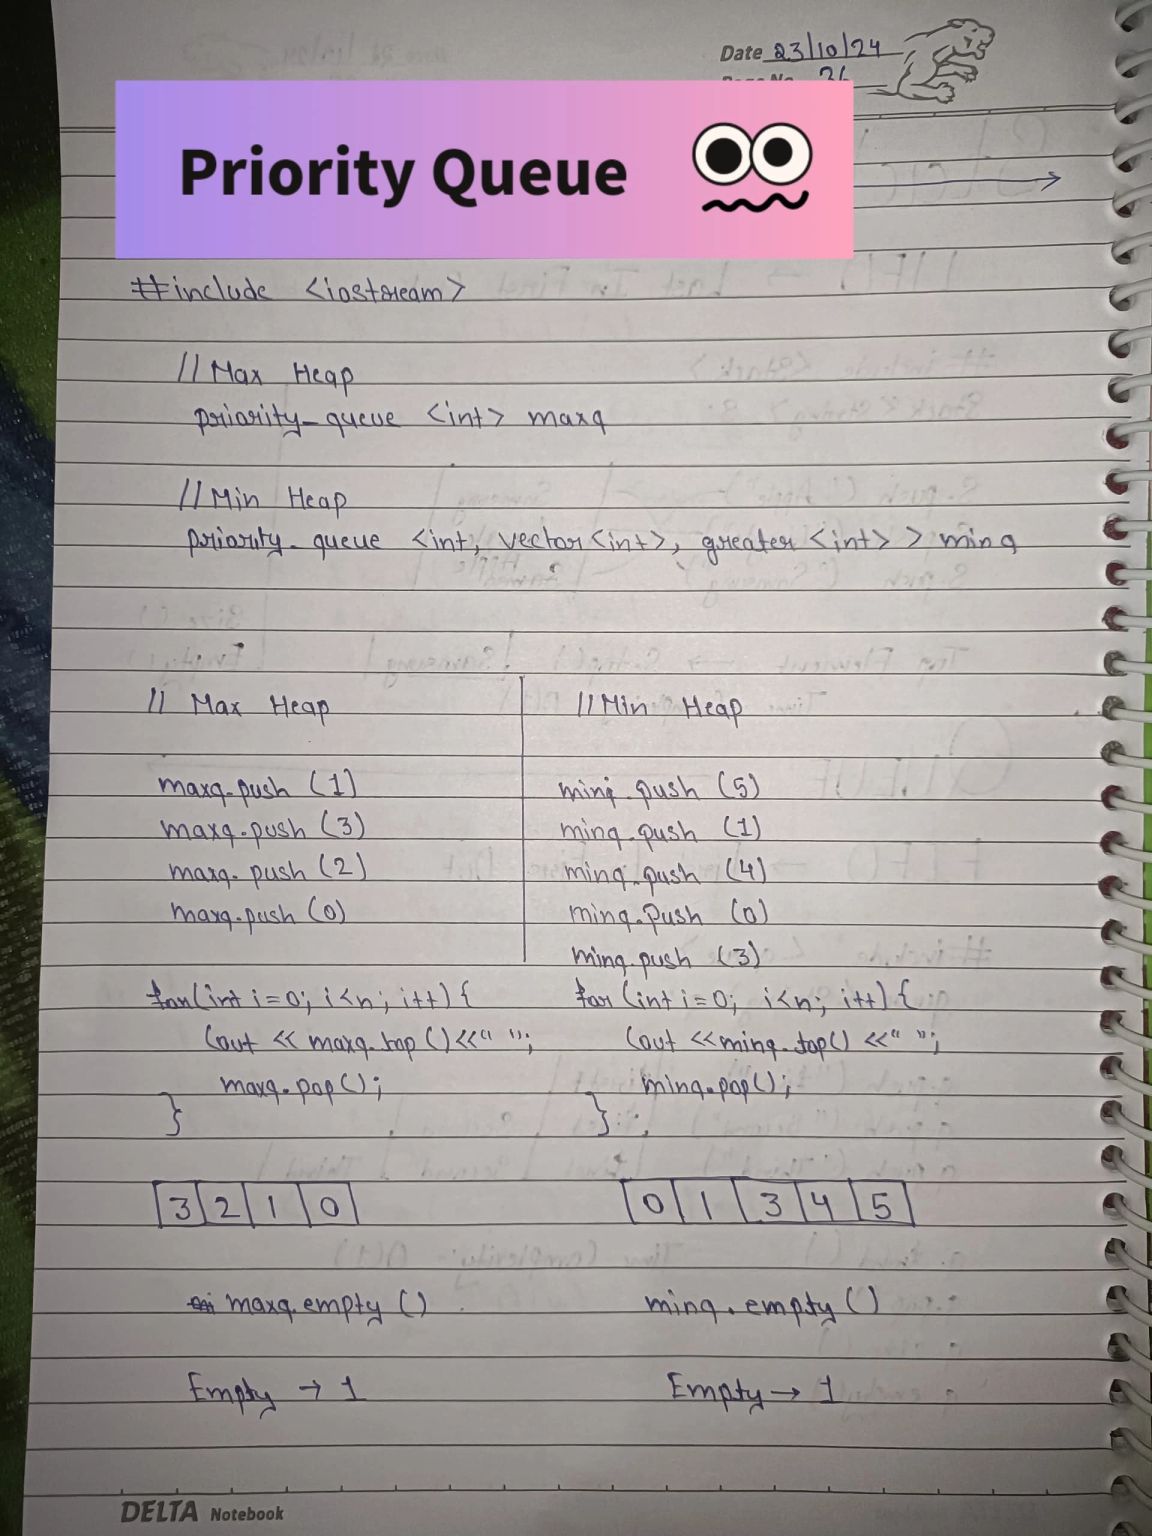 Date 23/10/24
Priority Queue
#include <iostream>
// Max Heap
priority_queue <int> maxq
// Min Heap
priority_queue <int, vector<int>, greater <int> > minq
// Max Heap
maxq.push (1)
maxq.push (3)
maxq.push (2)
maxq.push (0)
for(int i=0; i<n; i++) {
Cout << maxq.top () <<" ";
maxq.pop();
}
3 2 1 0
maxq.empty ()
Empty → 1
// Min Heap
minq.push (5)
minq.push (1)
minq.push (4)
minq.Push (0)
minq.push (3)
for (int i=0; i<n; i++) {
Cout <<minq.top() <<" ";
minq.pop();
}
0 1 3 4 5
minq.empty ()
Empty → 1
DELTA Notebook